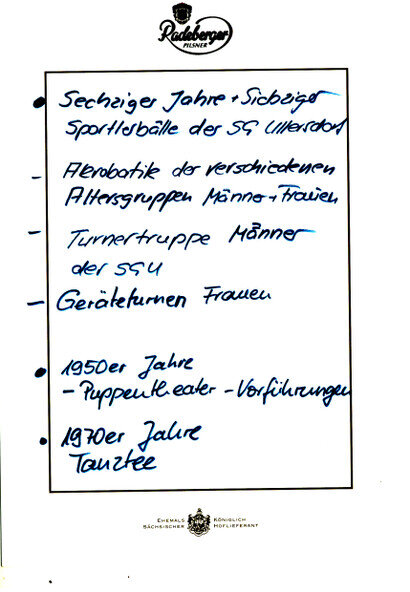 Radeberger
PILSNER
• Sechziger Jahre + Siebziger
Sportlerbälle der SG Ullersdorf
- Akrobatik der verschiedenen
Altersgruppen Männer + Frauen
- Turnertruppe Männer
der SGU
- Geräteturnen Frauen
• 1950er Jahre
- Puppentheater - Vorführungen
• 1970er Jahre
Tanztee
EHEMALS KÖNIGLICH
SÄCHSISCHER HOFLIEFERANT